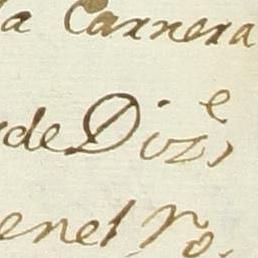 la Carrera
de Diz.e
en el Ro.